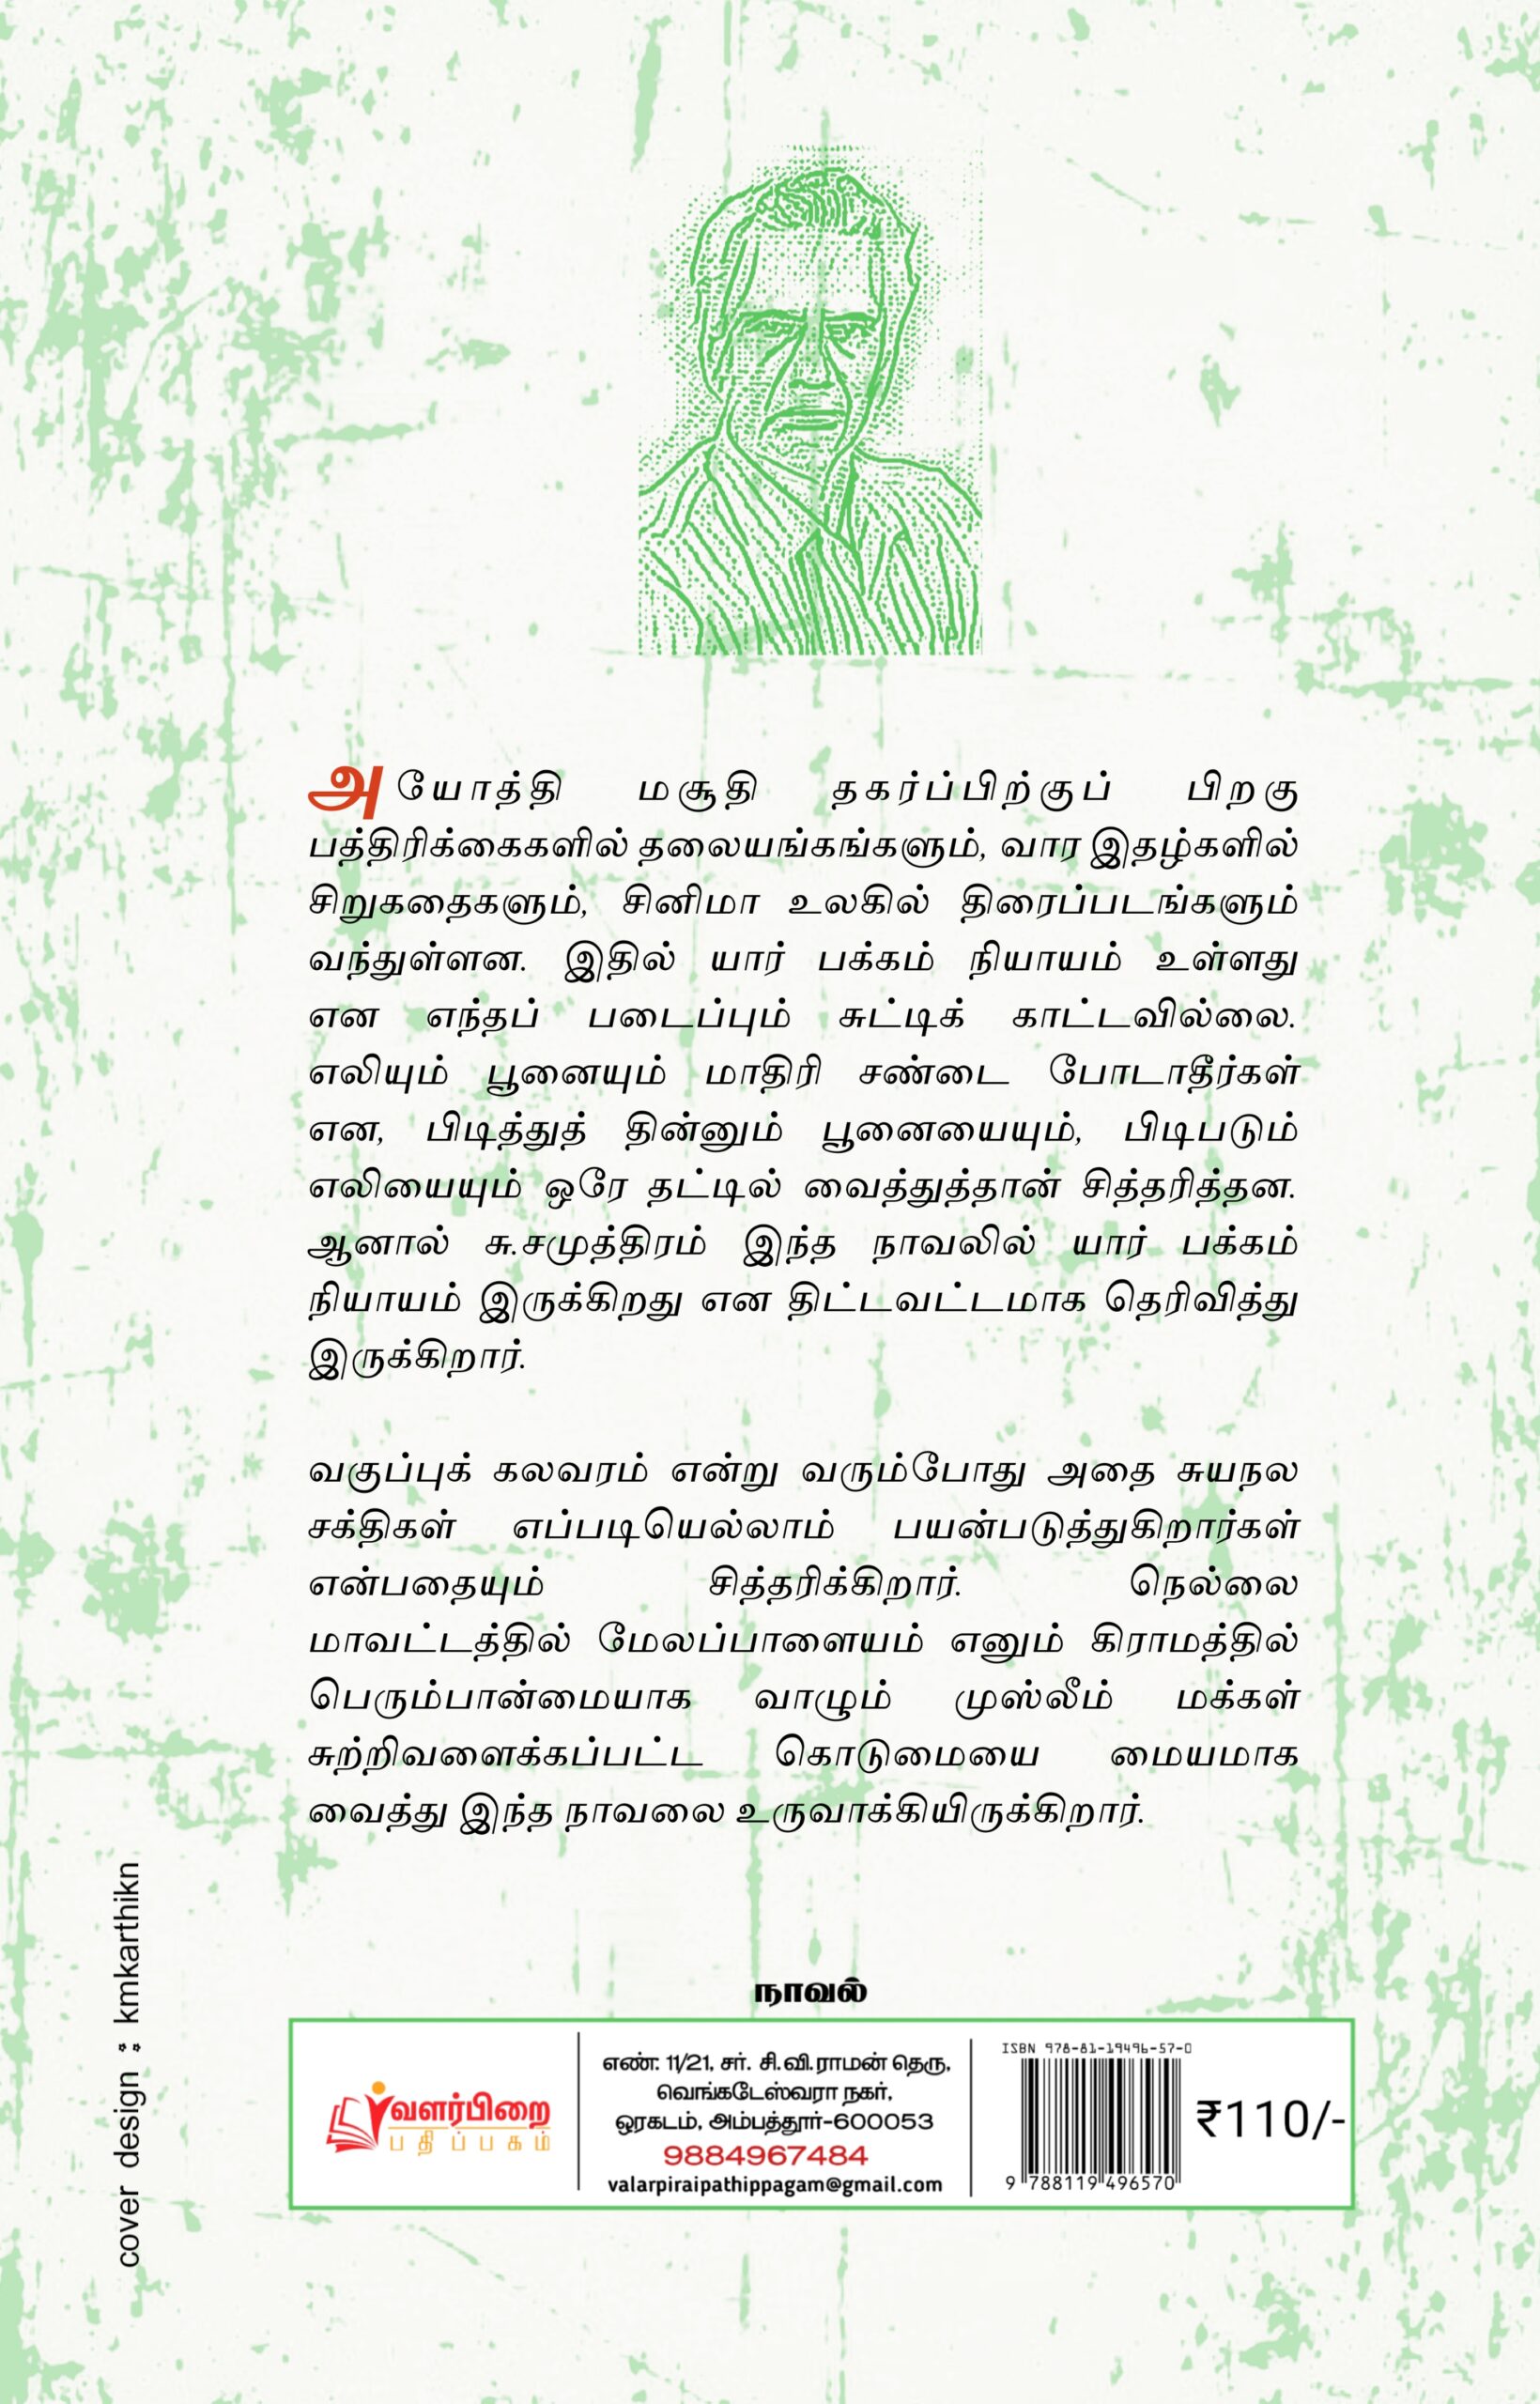 அயோத்தி மசூதி தகர்ப்பிற்குப் பிறகு
பத்திரிக்கைகளில் தலையங்கங்களும், வார இதழ்களில்
சிறுகதைகளும், சினிமா உலகில் திரைப்படங்களும்
வந்துள்ளன. இதில் யார் பக்கம் நியாயம் உள்ளது
என எந்தப் படைப்பும் சுட்டிக் காட்டவில்லை.
எலியும் பூனையும் மாதிரி சண்டை போடாதீர்கள்
என, பிடித்துத் தின்னும் பூனையையும், பிடிபடும்
எலியையும் ஒரே தட்டில் வைத்துத்தான் சித்தரித்தன.
ஆனால் சு.சமுத்திரம் இந்த நாவலில் யார் பக்கம்
நியாயம் இருக்கிறது என திட்டவட்டமாக தெரிவித்து
இருக்கிறார்.
வகுப்புக் கலவரம் என்று வரும்போது அதை சுயநல
சக்திகள் எப்படியெல்லாம் பயன்படுத்துகிறார்கள்
என்பதையும் சித்தரிக்கிறார். நெல்லை
மாவட்டத்தில் மேலப்பாளையம் எனும் கிராமத்தில்
பெரும்பான்மையாக வாழும் முஸ்லீம் மக்கள்
சுற்றிவளைக்கப்பட்ட கொடுமையை மையமாக
வைத்து இந்த நாவலை உருவாக்கியிருக்கிறார்.
cover design : kmkarthikn
நாவல்
வளர்பிறை
பதிப்பகம்
எண்: 11/21, சர். சி.வி.ராமன் தெரு,
வெங்கடேஸ்வரா நகர்,
ஒரகடம், அம்பத்தூர்-600053
9884967484
valarpiraipathippagam@gmail.com
ISBN 978-81-19496-57-0
9 788119 496570
₹110/-